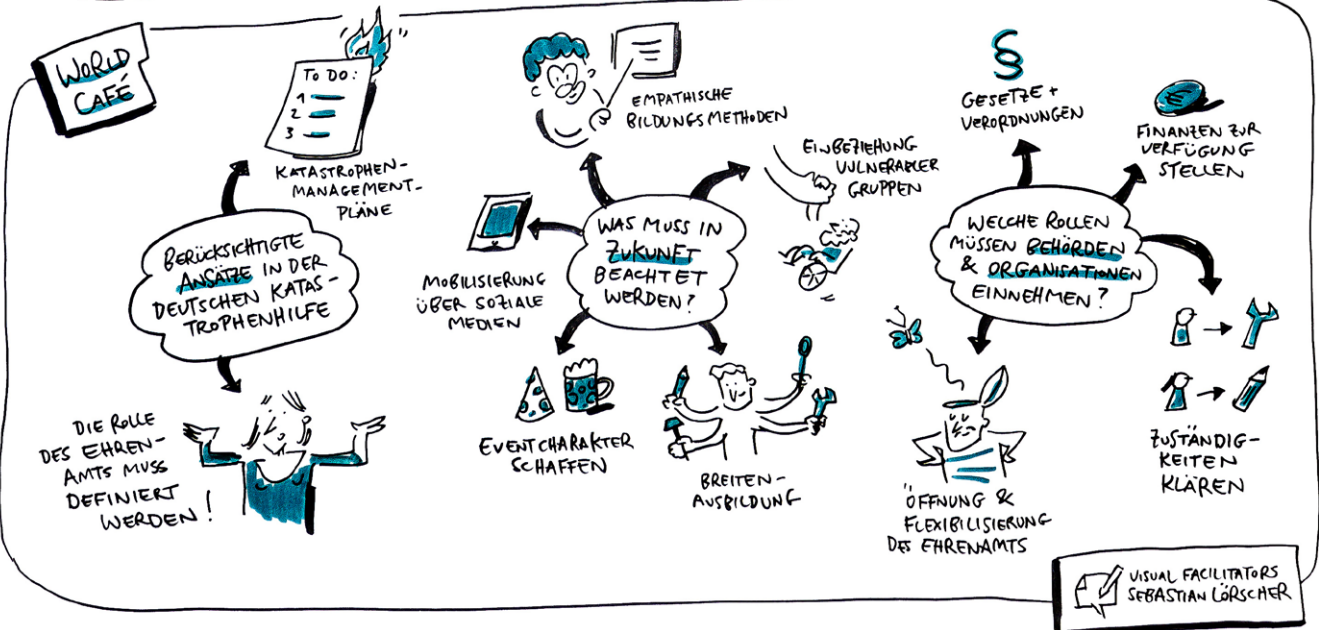 WORLD
CAFÉ
TO DO:
1
2
3
KATASTROPHEN-
MANAGEMENT-
PLÄNE
BERÜCKSICHTIGTE
ANSÄTZE IN DER
DEUTSCHEN KATAS-
TROPHENHILFE
DIE ROLLE
DES EHREN-
AMTS MUSS
DEFINIERT
WERDEN!
EMPATHISCHE
BILDUNGSMETHODEN
EINBEZIEHUNG
VULNERABLER
GRUPPEN
WAS MUSS IN
ZUKUNFT
BEACHTET
WERDEN?
MOBILISIERUNG
ÜBER SOZIALE
MEDIEN
EVENTCHARAKTER
SCHAFFEN
BREITEN-
AUSBILDUNG
§
GESETZE +
VERORDNUNGEN
€
FINANZEN ZUR
VERFÜGUNG
STELLEN
WELCHE ROLLEN
MÜSSEN BEHÖRDEN
& ORGANISATIONEN
EINNEHMEN?
ÖFFNUNG &
FLEXIBILISIERUNG
DES EHRENAMTS
ZUSTÄNDIG-
KEITEN
KLÄREN
VISUAL FACILITATORS
SEBASTIAN LÖRSCHER